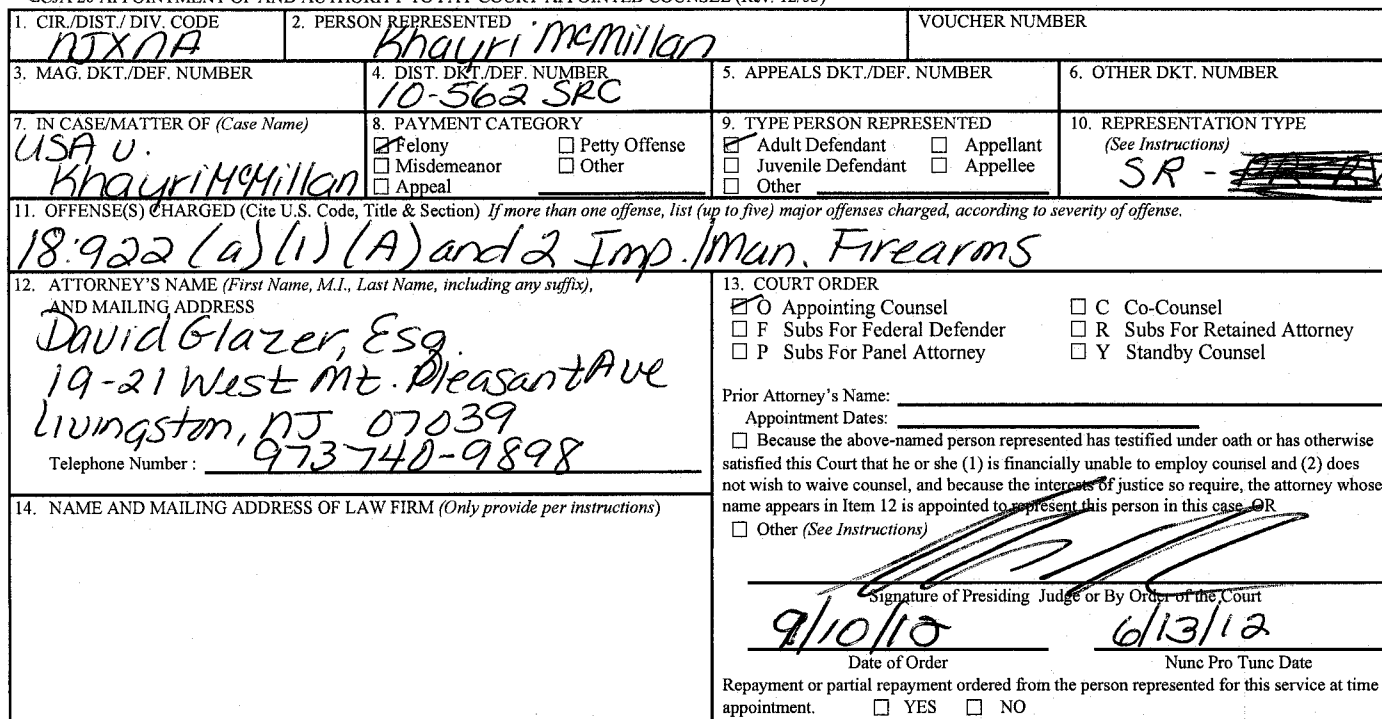 CJA 20 APPOINTMENT OF AND AUTHORITY TO PAY COURT APPOINTED COUNSEL
1. CIR./DIST./ DIV. CODE
NJXNA
2. PERSON REPRESENTED
Khayri McMillan
VOUCHER NUMBER
3. MAG. DKT./DEF. NUMBER
4. DIST. DKT./DEF. NUMBER
10-562 SRC
5. APPEALS DKT./DEF. NUMBER
6. OTHER DKT. NUMBER
7. IN CASE/MATTER OF (Case Name)
USA v.
Khayri McMillan
8. PAYMENT CATEGORY
☑ Felony ☐ Petty Offense
☐ Misdemeanor ☐ Other
☐ Appeal
9. TYPE PERSON REPRESENTED
☑ Adult Defendant ☐ Appellant
☐ Juvenile Defendant ☐ Appellee
☐ Other
10. REPRESENTATION TYPE
(See Instructions)
SR -
11. OFFENSE(S) CHARGED (Cite U.S. Code, Title & Section) If more than one offense, list (up to five) major offenses charged, according to severity of offense.
18:922 (a)(1)(A) and 2 Imp./Man. Firearms
12. ATTORNEY'S NAME (First Name, M.I., Last Name, including any suffix),
AND MAILING ADDRESS
David Glazer, Esq.
19-21 West Mt. Pleasant Ave
Livingston, NJ 07039
Telephone Number : 973 740-9898
13. COURT ORDER
☑ O Appointing Counsel ☐ C Co-Counsel
☐ F Subs For Federal Defender ☐ R Subs For Retained Attorney
☐ P Subs For Panel Attorney ☐ Y Standby Counsel
Prior Attorney's Name:
Appointment Dates:
☐ Because the above-named person represented has testified under oath or has otherwise
satisfied this Court that he or she (1) is financially unable to employ counsel and (2) does
not wish to waive counsel, and because the interests of justice so require, the attorney whose
name appears in Item 12 is appointed to represent this person in this case, OR
☐ Other (See Instructions)
Signature of Presiding Judge or By Order of the Court
9/10/12 6/13/12
Date of Order Nunc Pro Tunc Date
Repayment or partial repayment ordered from the person represented for this service at time
appointment. ☐ YES ☐ NO
14. NAME AND MAILING ADDRESS OF LAW FIRM (Only provide per instructions)